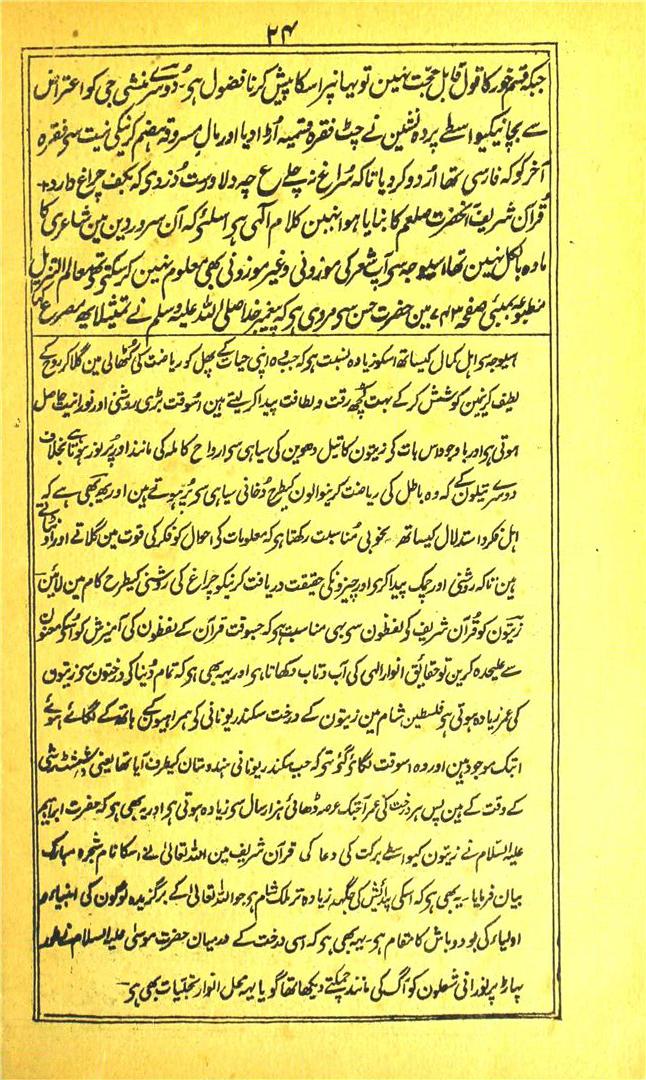 ۲۴
جبکہ قسم خور کا قول قابل حجّت نہین تو یہانپر اسکا پیش کرنا فضول ہو۔ دُوسرے منشی جی کو اعتراض
سے بچانیکیواسطے پردہ نشین نے چٹ فقرہ قسمیہ اُڑا دیا اور مالِ مسروقہ ہضم کرنیکی نیت سی فقرہ
آخر کو کہ فارسی تھا اُردو کر دیا تاکہ سُراغ نہ چلے ع چہ دلاورست دُزدی کہ بکف چراغ دارد +
قُرآن شریف آنحضرت صلعم کا بنایا ہوا نہین کلامِ الٰہی ہی اسلئی کہ آن سرورِ دین مین شاعری کا
مادہ بالکل نہین تھا اسیوجہ سی آپ شعر کی موزونی و غیر موزونی بھی معلوم نہین کر سکتی تھی معالم التنزیل
مطبوعہ بمبئی صفحہ ۷۴۳ مین حضرت حسن سی مروی ہی کہ پیغمبر خدا صلی اللہ علیہ وسلم نے تمثیلاً یہ مصرع
اسیوجہ سی اہل کمال کیساتھ اسکو زیادہ نسبت ہو کہ جب وہ اپنی حیات کے پھل کو ریاضت کی کُٹھالی مین گلا کر روح کے
لطیف کرنیمین کوشش کر کے بہت کچھ رقت و لطافت پیدا کر لیتے ہین اُسوقت بڑی روشنی اور نورانیت حاصل
ہوتی ہی اور باوجود اس بات کی زیتون کا تیل دھوین کی سیاہی سی ارواح کاملہ کی مانند اور پُر نور ہوتا ہے بخلاف
دوسرے تیلون کے کہ وہ باطل کی ریاضت کرنیوالون کیطرح دُخانی سیاہی سی پُر ہوتے ہین اور یہ بھی ہے کہ
اہل فکر و استدلال کیساتھ بخوبی مُناسبت رکھتا ہی کہ معلومات کی احوال کو فکر کی قوت مین گلاتے اور
ہین تاکہ روشنی اور چمک پیدا کری اور چیزونکی حقیقت دریافت کرنیکو چراغ کی روشنی کیطرح کام مین لائین
زیتون کو قُرآن شریف کی لفظون سی یہی مناسبت ہی کہ جسوقت قرآن کے لفظون کی آمیزش کو اُسکی معنون
سے علیحدہ کرین تو حقایق انوار الٰہی کی آب و تاب دکھاتا ہی اور یہہ بھی ہی کہ تمام دُنیا کی درختون سی زیتون
کی عمر زیادہ ہوتی ہی فلسطین شام مین زیتون کے درخت سکندر یونانی کی ہمراہیون کے ہاتھ کے لگائے ہوئے
ابتک موجود ہین اور وہ اسوقت لگائی گئی تھی کہ جب سکندر یونانی ہندوستان کیطرف آیا تھا یعنی
کے وقت کے ہین پس ہر درخت کی عمر آجتک عرصہ ڈھائی ہزار سال سی زیادہ ہوتی ہی اور یہ بھی ہی کہ حضرت ابراہیم
علیہ السّلام نے زیتون کیواسطے برکت کی دعا کی قرآن شریف مین اللہ تعالیٰ نے اسکا نام شجرہ مبارکہ
بیان فرمایا۔ یہ بھی ہی کہ اسکی پیدائش کی جگہہ زیادہ تر ملک شام ہی جو اللہ تعالیٰ کے برگزیدہ لوگون کی انبیاء و
اولیاء کی بود و باش کا مقام ہی۔ یہہ بھی ہی کہ اسی درخت کے درمیان حضرت موسیٰ علیہ السلام نے طور
پہاڑ پر نورانی شعلون کو آگ کی مانند چمکتے دیکھا تھا گویا یہہ محل انوار تجلّیات بھی ہی